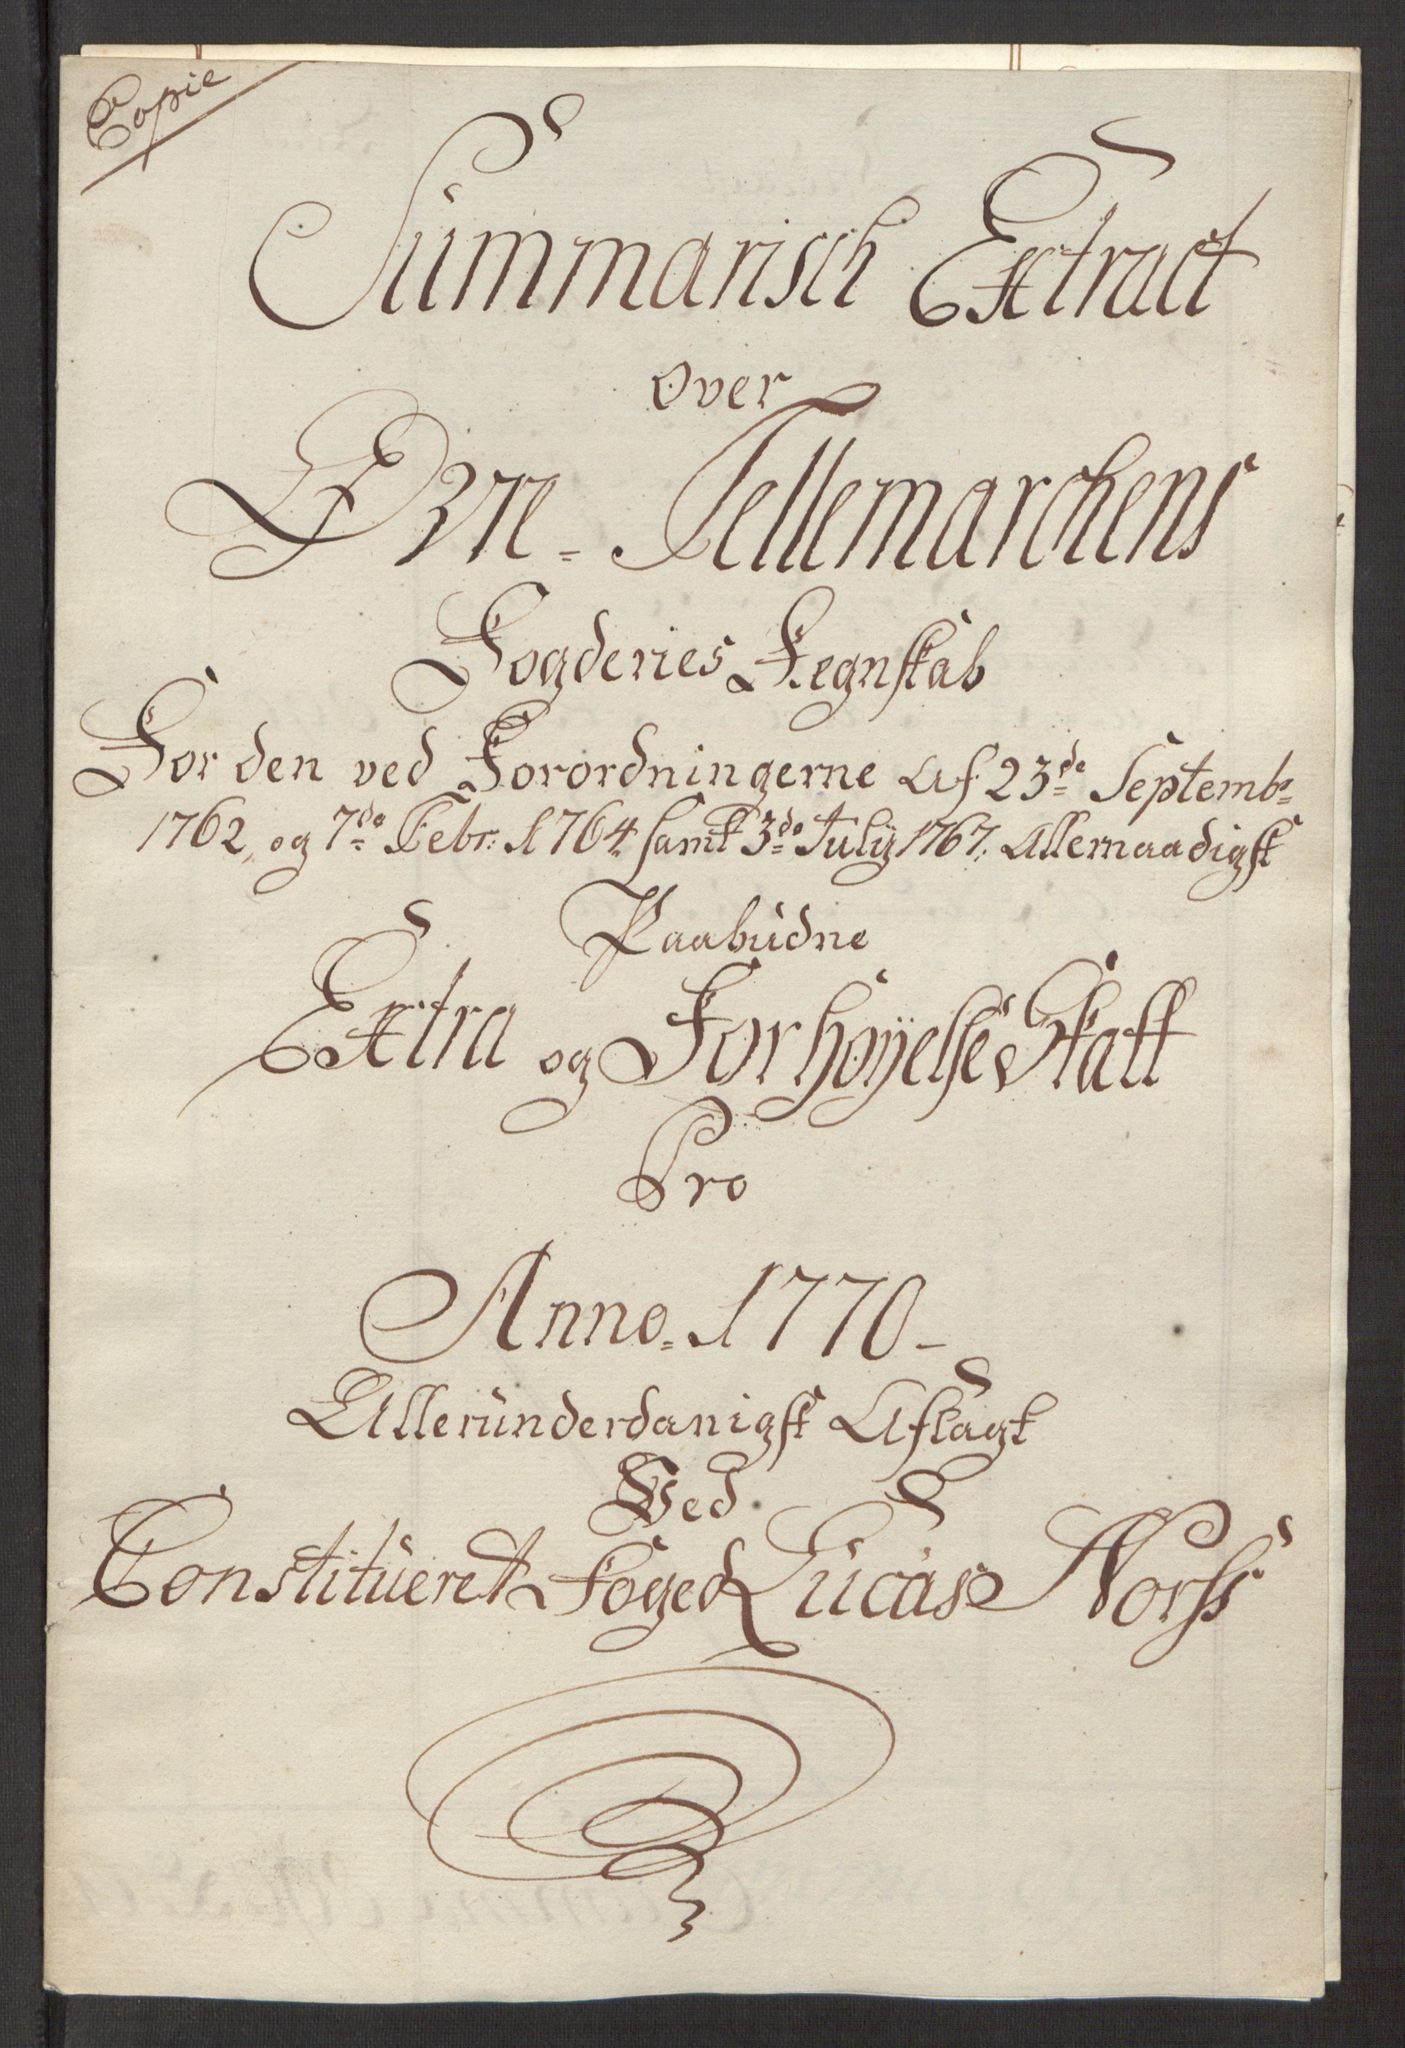 Copie
Summarisch Extract
over
Øvre-Tellemarchens
Fogderies Regnskab
For den ved Forordningerne af 23de Septembr
1762, og 7de Febr: 1764. samt 3de July 1767. Allernaadigst
Paabudne
Extra og Forhøyelse Skatt
Pro
Anno 1770-
Allerunderdanigst Aflagt
Ved
Constitueret Foged Lucas Norss